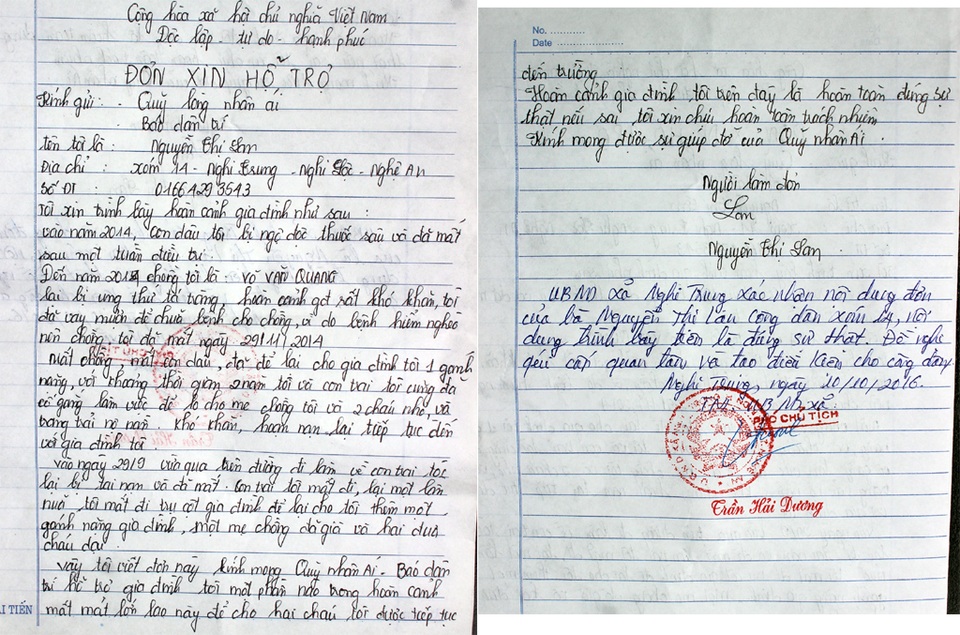 Cộng hòa xã hội chủ nghĩa Việt Nam
Độc lập - tự do - hạnh phúc
ĐƠN XIN HỖ TRỢ
Kính gửi: - Quỹ lòng nhân ái
Báo dân trí
tên tôi là : Nguyễn Thị Lam
Địa chỉ : xóm 14 - Nghi Trung - Nghi Lộc - Nghệ An
Số ĐT : 01664293543
Tôi xin trình bày hoàn cảnh gia đình như sau :
vào năm 2014, con dâu tôi bị ngộ độc thuốc sâu và đã mất
sau một tuần điều trị.
Đến năm 2014 chồng tôi là VÕ VĂN QUANG
lại bị ung thư tá tràng, hoàn cảnh rất khó khăn, tôi
đã vay mượn để chữa bệnh cho chồng, vì do bệnh hiểm nghèo
nên chồng tôi đã mất ngày 29/11/2014
mất chồng, mất con dâu, đã để lại cho gia đình tôi 1 gánh
nặng, với khoảng thời gian 2 năm tôi và con trai tôi cũng đã
cố gắng làm vực để lo cho mẹ chồng tôi và 2 cháu nhỏ, và
trang trải nợ nần khó khăn, hoạn nạn lại tiếp tục đến
với gia đình tôi.
vào ngày 29/9 vừa qua trên đường đi làm về con trai tôi
lại bị tai nạn và đi mất. Con trai tôi mất đi, lại một lần
nữa, tôi mất đi trụ cột gia đình để lại cho tôi thêm một
gánh nặng gia đình, một mẹ chồng đã già và hai đứa
cháu dại.
vậy tôi viết đơn này kính mong Quỹ nhân Ái - Báo dân
trí hỗ trợ gia đình tôi một phần nào trong hoàn cảnh
mất mát lớn lao này để cho hai cháu tôi được tiếp tục
ẢI TIẾN
No. ............
Date ......................
đến trường
Hoàn cảnh gia đình tôi trên đây là hoàn toàn đúng sự
thật nếu sai tôi xin chịu hoàn toàn trách nhiệm
Kính mong được sự giúp đỡ của Quỹ nhân Ái.
Người làm đơn
Lam
Nguyễn Thị Lam
UBND xã Nghi Trung xác nhận nội dung đơn
của bà Nguyễn Thị Lam công dân xóm 14, nội
dung trình bày trên là đúng sự thật. Đề nghị
quý cấp quan tâm và tạo điều kiện cho công dân.
Nghi Trung, ngày 10/10/2016.
TM. UBND xã
PHÓ CHỦ TỊCH
Trần Hải Dương